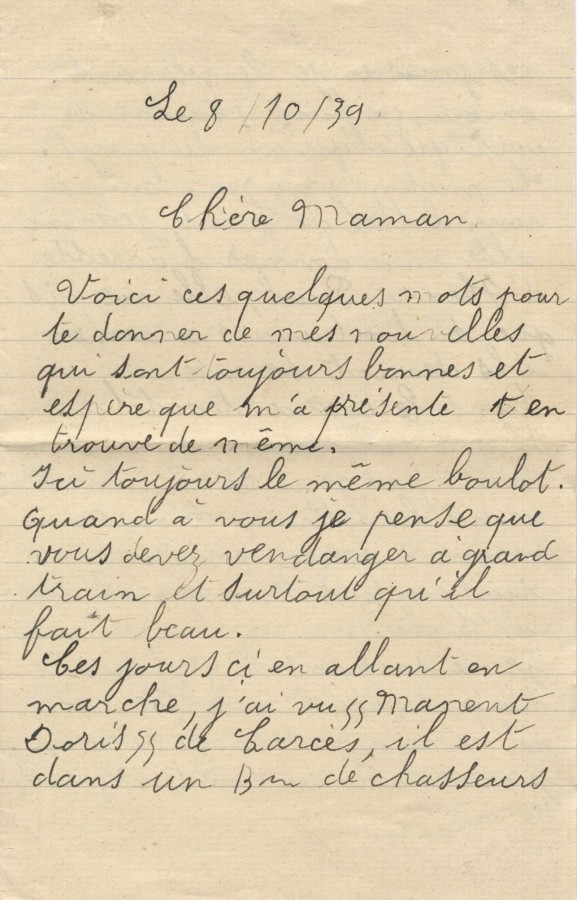 Le 8/10/39.
Chère Maman
Voici ces quelques mots pour
te donner de mes nouvelles
qui sont toujours bonnes et
espire que m'a présente t en
trouve de même.
Ici toujours le même boulot.
Quand à vous je pense que
vous devez vendanger à grand
train et surtout qu'il
fait beau.
Ces jours ci en allant en
marche, j'ai vu "Manent
Doris" de Carcès, il est
dans un Bn de chasseurs